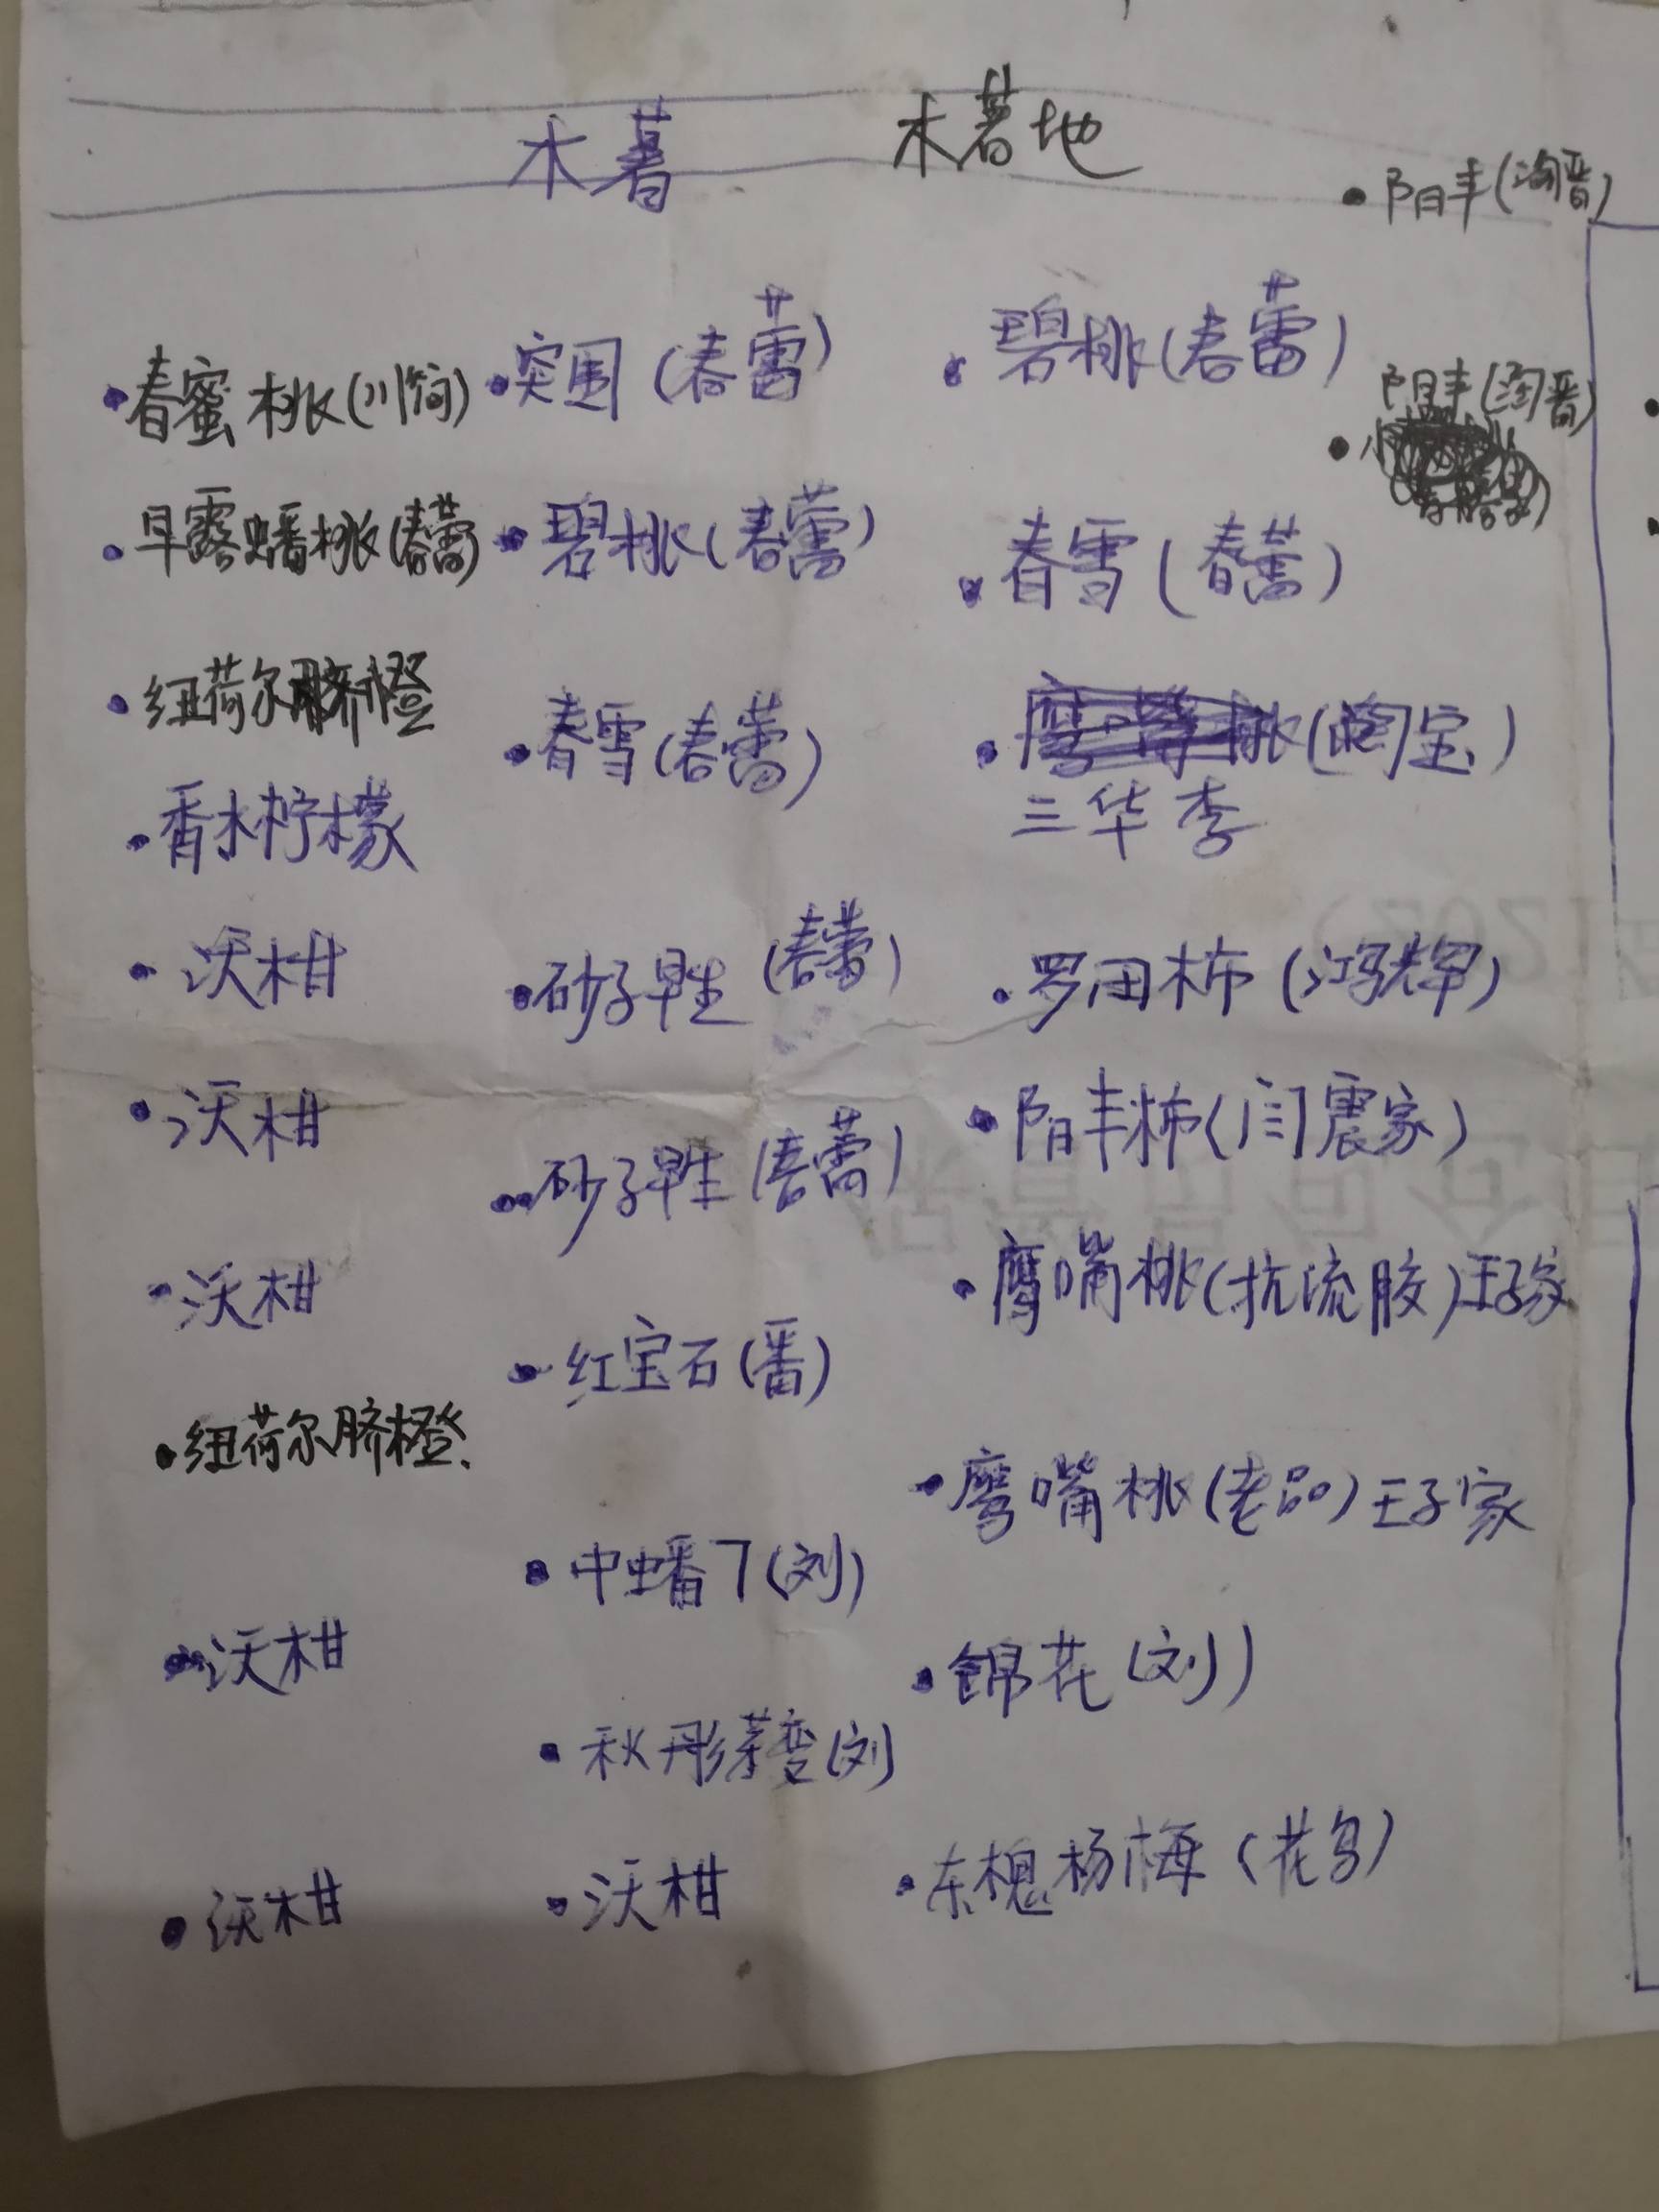 木薯 木薯地
阳丰(淘晋)
春蜜桃(川简)
早露蟠桃(春蕾)
纽荷尔脐橙
香水柠檬
沃柑
沃柑
沃柑
纽荷尔脐橙
沃柑
沃柑
突围(春蕾)
碧桃(春蕾)
春雪(春蕾)
砂子早生(春蕾)
砂子早生(春蕾)
红宝石(番)
中蟠7(刘)
秋彤芽变(刘)
沃柑
碧桃(春蕾)
春雪(春蕾)
鹰嘴桃(淘宝)
三华李
罗田柿(鸿辉)
阳丰柿(闫震家)
鹰嘴桃(抗流胶)王子家
鹰嘴桃(老品)王子家
锦花(刘)
东槐杨梅(花鸟)
阳丰(淘晋)